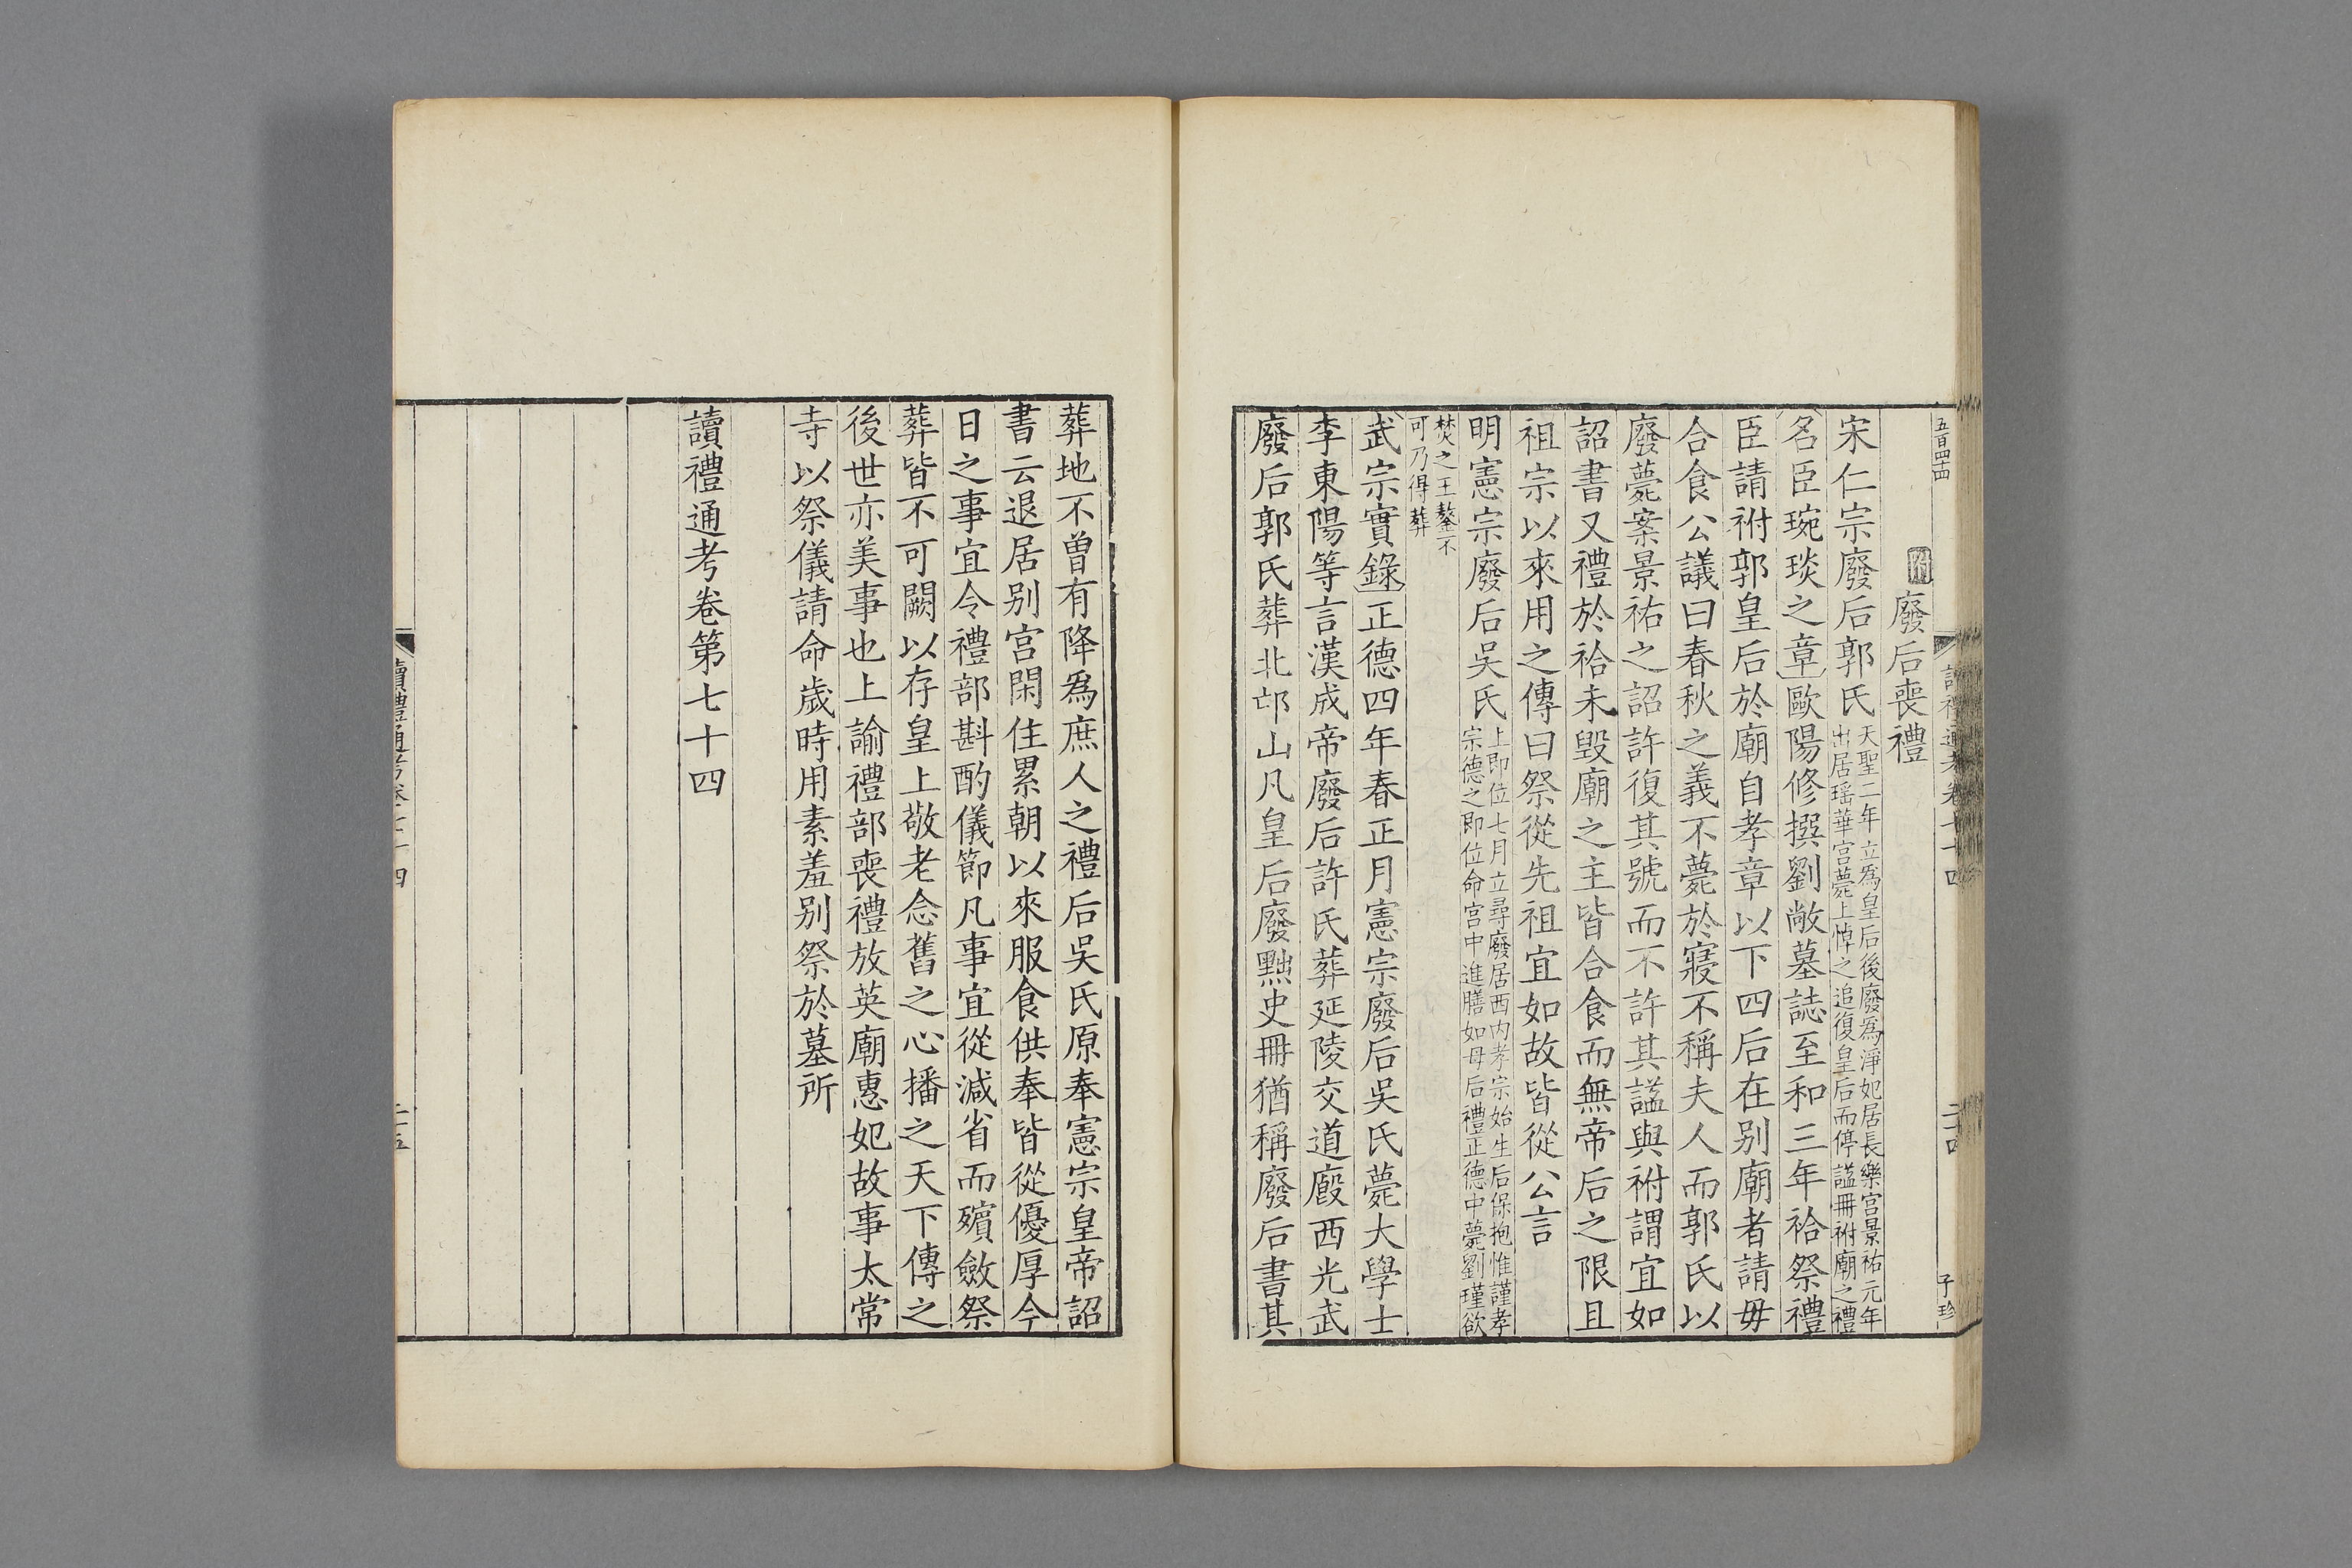 五百四十四
附 廢后喪禮
宋仁宗廢后郭氏天聖二年立爲皇后後廢爲淨妃居長樂宫景祐元年
出居瑶華宫薨上悼之追復皇后而停謚冊祔廟之禮
名臣琬琰之章歐陽修撰劉敞墓誌至和三年祫祭禮
臣請祔郭皇后於廟自孝章以下四后在别廟者請毋
合食公議曰春秋之義不薨於寢不稱夫人而郭氏以
廢薨案景祐之詔許復其號而不許其謚與祔謂宜如
詔書又禮於祫未毁廟之主皆合食而無帝后之限且
祖宗以來用之傳曰祭從先祖宜如故皆從公言
明憲宗廢后吳氏上即位七月立尋廢居西内孝宗始生后保抱惟謹孝
宗德之即位命宫中進膳如母后禮正德中薨劉瑾欲
焚之王鏊不
可乃得葬
武宗實錄正德四年春正月憲宗廢后吳氏薨大學士
李東陽等言漢成帝廢后許氏葬延陵交道廄西光武
廢后郭氏葬北邙山凡皇后廢黜史冊猶稱廢后書其
讀禮通考卷七十四
二十四
子珍
葬地不曾有降爲庶人之禮后吳氏原奉憲宗皇帝詔
書云退居别宫閑住累朝以來服食供奉皆從優厚今
日之事宜令禮部斟酌儀節凡事宜從減省而殯斂祭
葬皆不可闕以存皇上敬老念舊之心播之天下傳之
後世亦美事也上諭禮部喪禮放英廟惠妃故事太常
寺以祭儀請命歲時用素羞别祭於墓所
讀禮通考卷第七十四
讀禮通考卷七十四
二十五